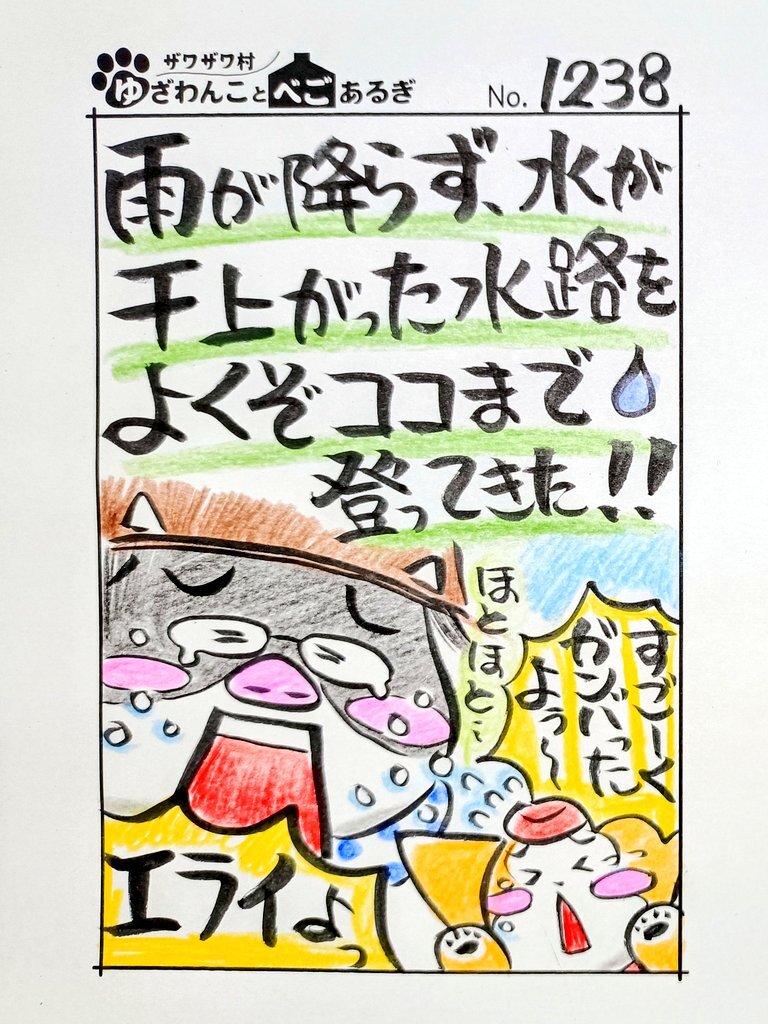 ザワザワ村
ゆざわんことべごあるぎ
No. 1238
雨が降らず、水が
干上がった水路を
よくぞココまで
登ってきた!!
ほとほと…
すごーく
ガンバった
よぅ〜
エライよっ